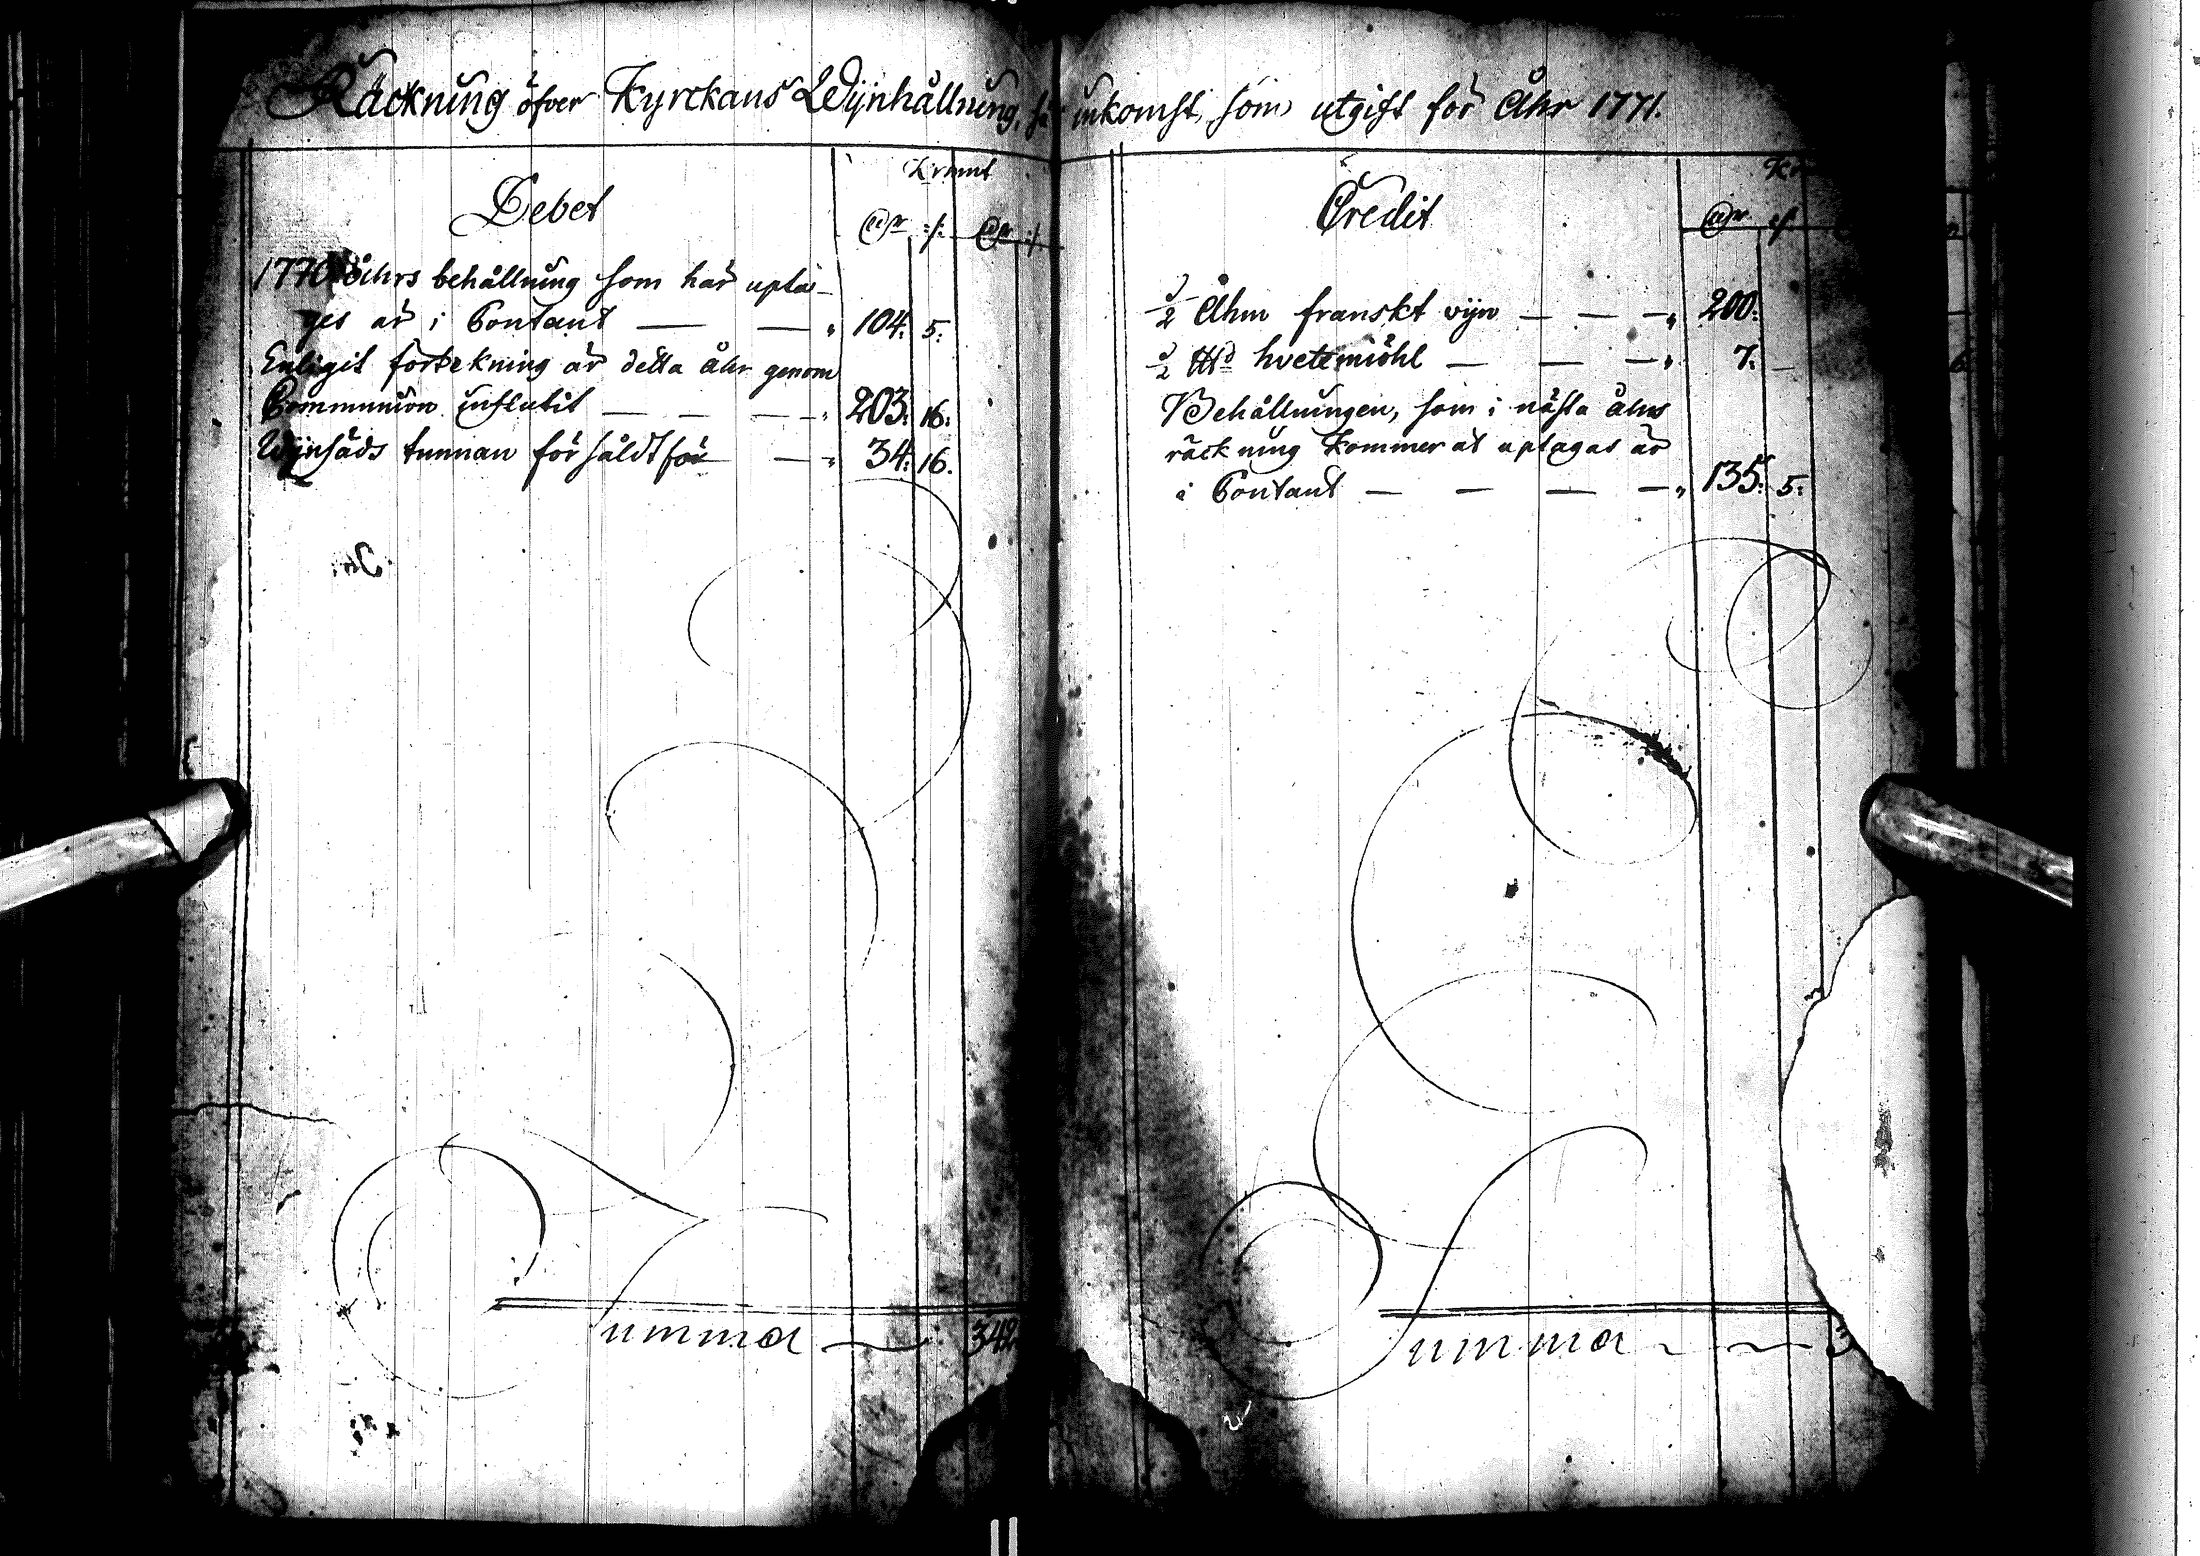 Räckning öfver Kyrckans Wijnhållning, så inkomst, som utgift för Åhr 1771.
Debet
Krmnt
Dlr :/: Dlr :/:
1770 åhrs behållning som här uptä-
ges är i Contant — — 104: 5:
Enligit förtekning är detta åhr genom
Communion influtit — — — 203: 16:
Wijnsäds tunnan försåldt för — 34: 16.
Summa 342
Credit
Dlr :/:
1/2 Åhm franskt vijn — — — 200:
1/2 hvetemiöhl — — — 7: —
Behållningen, som i nästa åhrs
räckning kommer at uptagas är
i Contant — — — — 135: 5:
Summa 3